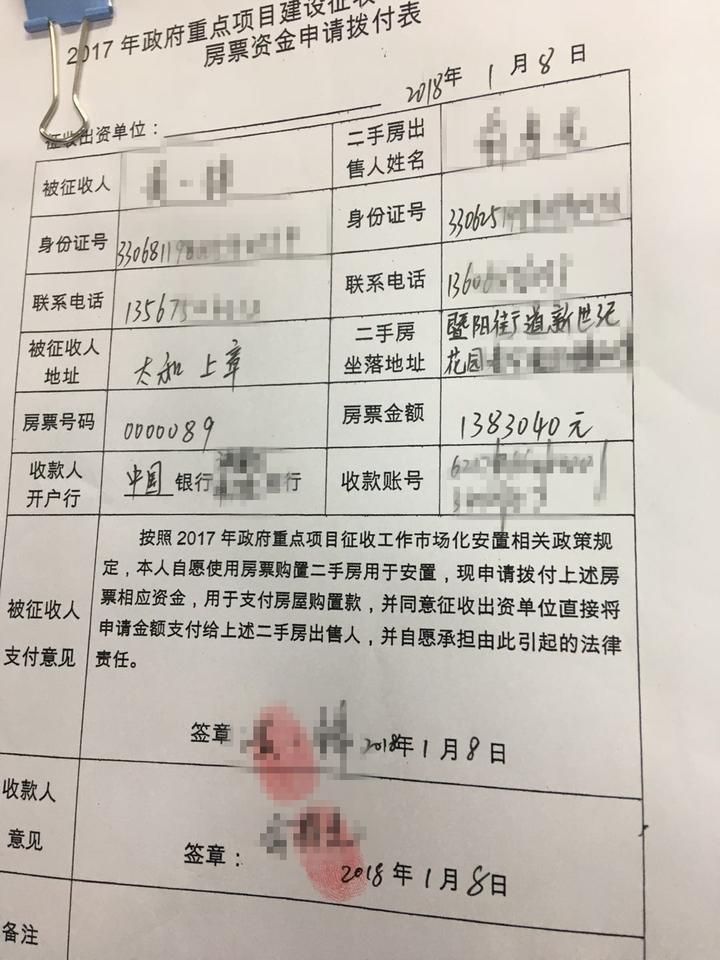 2017年政府重点项目建设征收
房票资金申请拨付表
2018年 1 月 8 日
征收出资单位：
被征收人
二手房出
售人姓名
身份证号 330681198
身份证号 33062519
联系电话 13567
联系电话 1360
被征收人
地址
太和上章
二手房
坐落地址
暨阳街道新世纪
花园
房票号码 0000089
房票金额 1383040元
收款人
开户行
中国 银行 行
收款账号
被征收人
支付意见
按照2017年政府重点项目征收工作市场化安置相关政策规
定，本人自愿使用房票购置二手房用于安置，现申请拨付上述房
票相应资金，用于支付房屋购置款，并同意征收出资单位直接将
申请金额支付给上述二手房出售人，并自愿承担由此引起的法律
责任。
签章： 2018年 1 月 8 日
收款人
意见
签章： 2018年 1 月 8 日
备注